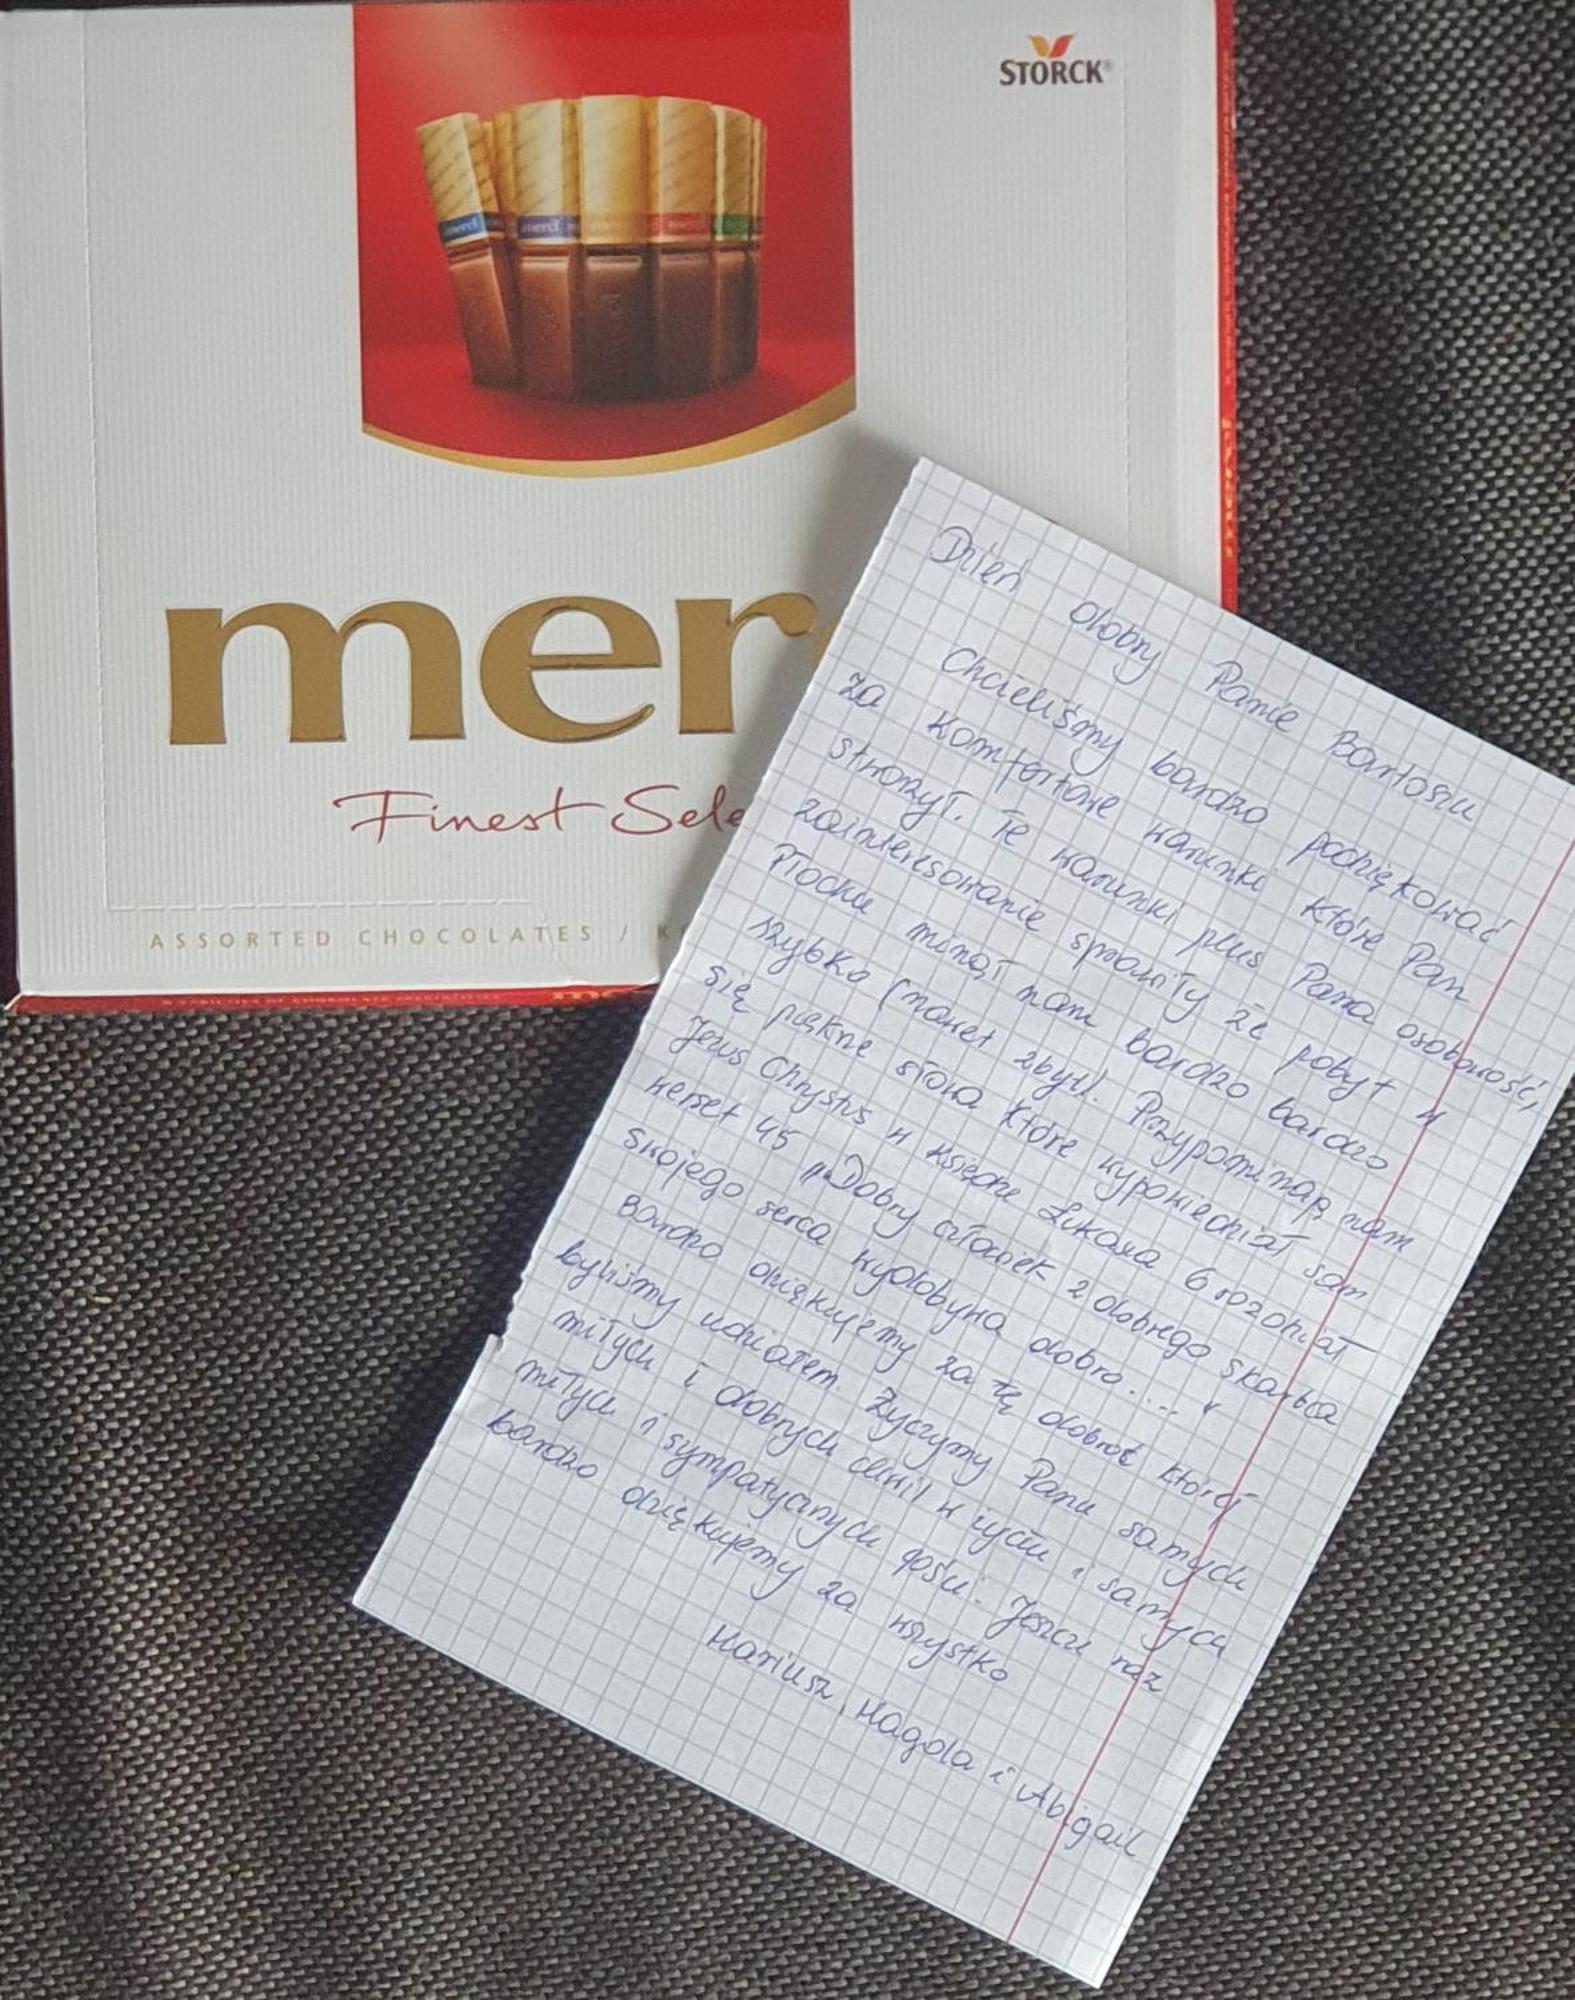 STORCK®
merci
merci
mer
Finest Sele
ASSORTED CHOCOLATES / K
Dzień dobry Panie Bartoszu
Chcieliśmy bardzo podziękować
za komfortowe warunki które Pan
stworzył. Te warunki plus Pana osobowość,
zainteresowanie sprawiły że pobyt w
Płocku minął nam bardzo bardzo
szybko (nawet zbyt). Przypominają nam
się piękne słowa które wypowiedział sam
Jezus Chrystus w księdze Łukasza 6 rozdział
werset 45 "Dobry człowiek z dobrego skarbca
swojego serca wydobywa dobro...."
Bardzo dziękujemy za tę dobroć której
byliśmy udziałem. Życzymy Panu samych
miłych i dobrych chwil w życiu i samych
miłych i sympatycznych gości. Jeszcze raz
bardzo dziękujemy za wszystko
Mariusz, Magda i Abigail